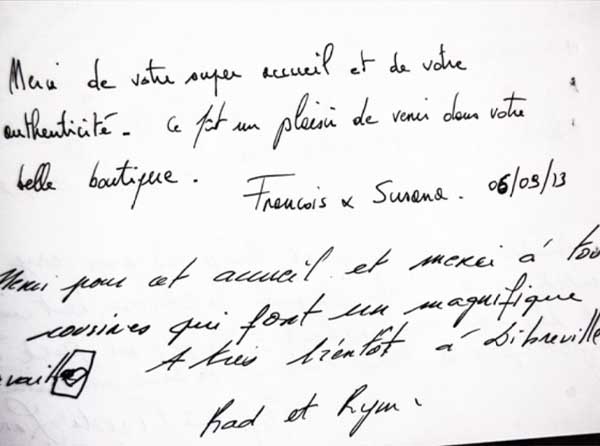 Merci de votre super accueil et de votre
authenticité. Ce fut un plaisir de venir dans votre
belle boutique.
Francois & Susana. 06/09/13
Merci pour cet accueil et merci à
cousines qui font un magnifique
A très bientôt à Libreville
Rad et Rym.